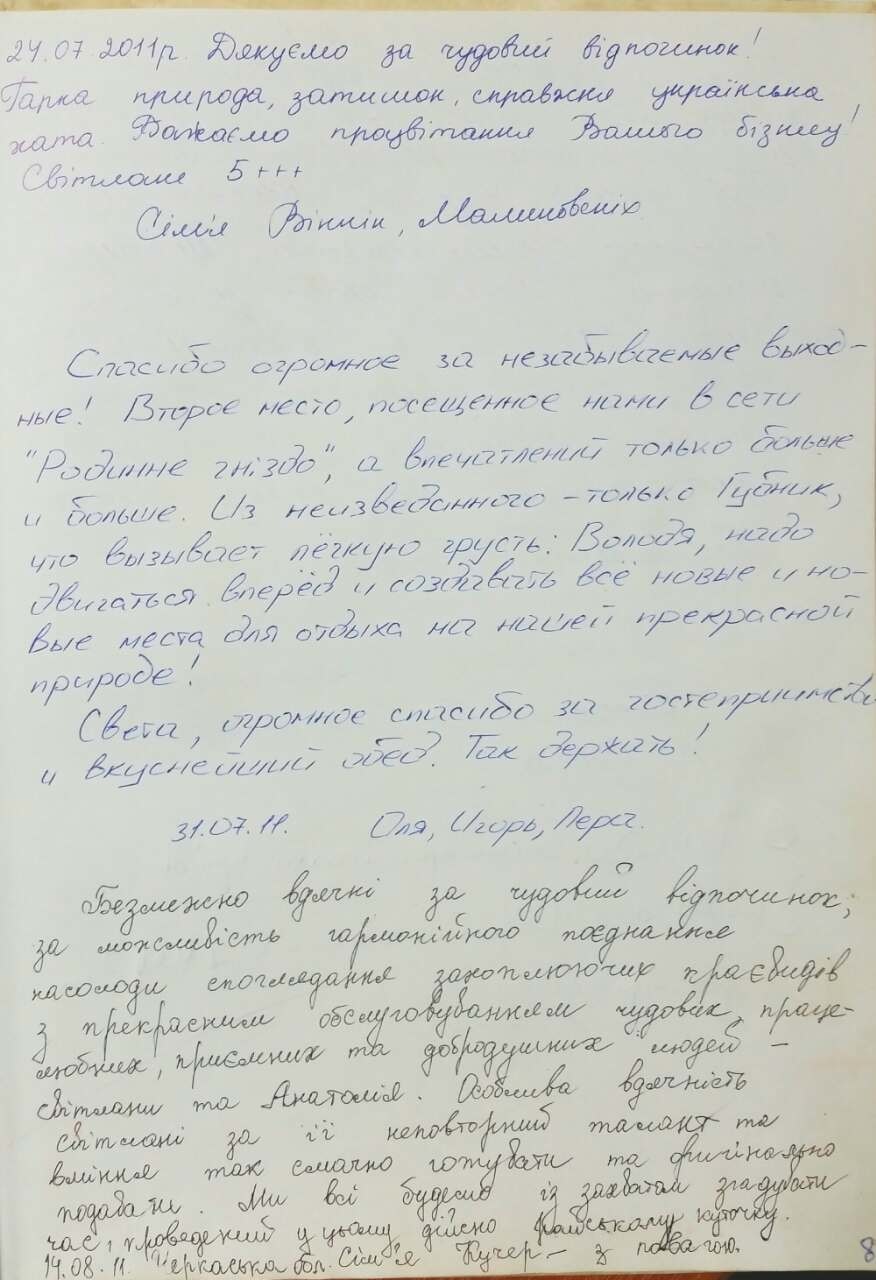 24.07.2011р. Дякуємо за чудовий відпочинок!
Гарна природа, затишок, справжня українська
хата. Бажаємо процвітання Вашого бізнесу!
Світлане 5+++
Сім'я Вінніп, Малиновсніх
Спасибо огромное за незабываемые выход-
ные! Второе место, посещенное нами в сети
"Родинне гніздо", а впечатлений только больше
и больше. Из неизведанного - только Губник,
что вызывает лёгкую грусть: Володя, надо
двигаться вперёд и создавать всё новые и но-
вые места для отдыха на нашей прекрасной
природе!
Света, огромное спасибо за гостеприимство
и вкуснейший обед. Так держать!
31.07.11. Оля, Игорь, Лера.
Безмежно вдячні за чудовий відпочинок;
за можливість гармонійного поєднання
насолоди споглядання захоплюючих краєвидів
з прекрасним обслуговуванням чудових, праце-
любних, приємних та добродушних людей -
Світлани та Анатолія. Особлива вдячність
Світлані за її неповторний талант та
вміння так смачно готувати та оригінально
подавати. Ми всі будемо із захватом згадувати
час, проведений у цьому дійсно райському куточку.
14.08.11. Черкаська обл. Сім'я Кучер - з повагою.
8